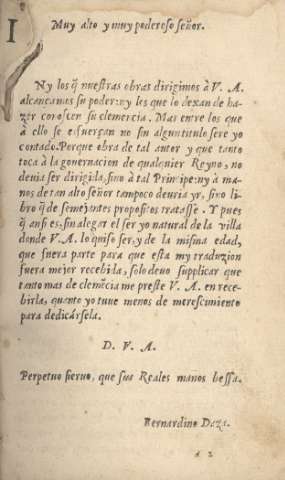 Muy alto y muy poderoso señor.
I
Ny los q̃ nuestras obras dirigimos à V. A.
alcançamos su poder: ny les que lo dexan de ha-
zer conoscen su clemencia. Mas entre los que
à ello se esfuerçan no sin algun titulo sere yo
contado. Porque obra de tal autor y que tanto
toca à la governacion de qualquier Reyno, no
devia ser dirigida, sino à tal Principe: ny à ma-
nos de tan alto señor tampoco devria yr, sino li-
bro q̃ de semejantes propositos tratasse. Y pues
q̃ ansi es, sin alegar el ser yo natural de la villa
donde V. A. lo quiso ser, y de la misma edad,
que fuera parte para que esta my traduzion
fuera mejor recebida, solo devo supplicar que
tanto mas de clemẽcia me preste V. A. en rece-
birla, quanto yo tuve menos de merescimiento
para dedicársela.
D. V. A.
Perpetuo siervo, que sus Reales manos bessa.
Bernardino Daza.
A 2